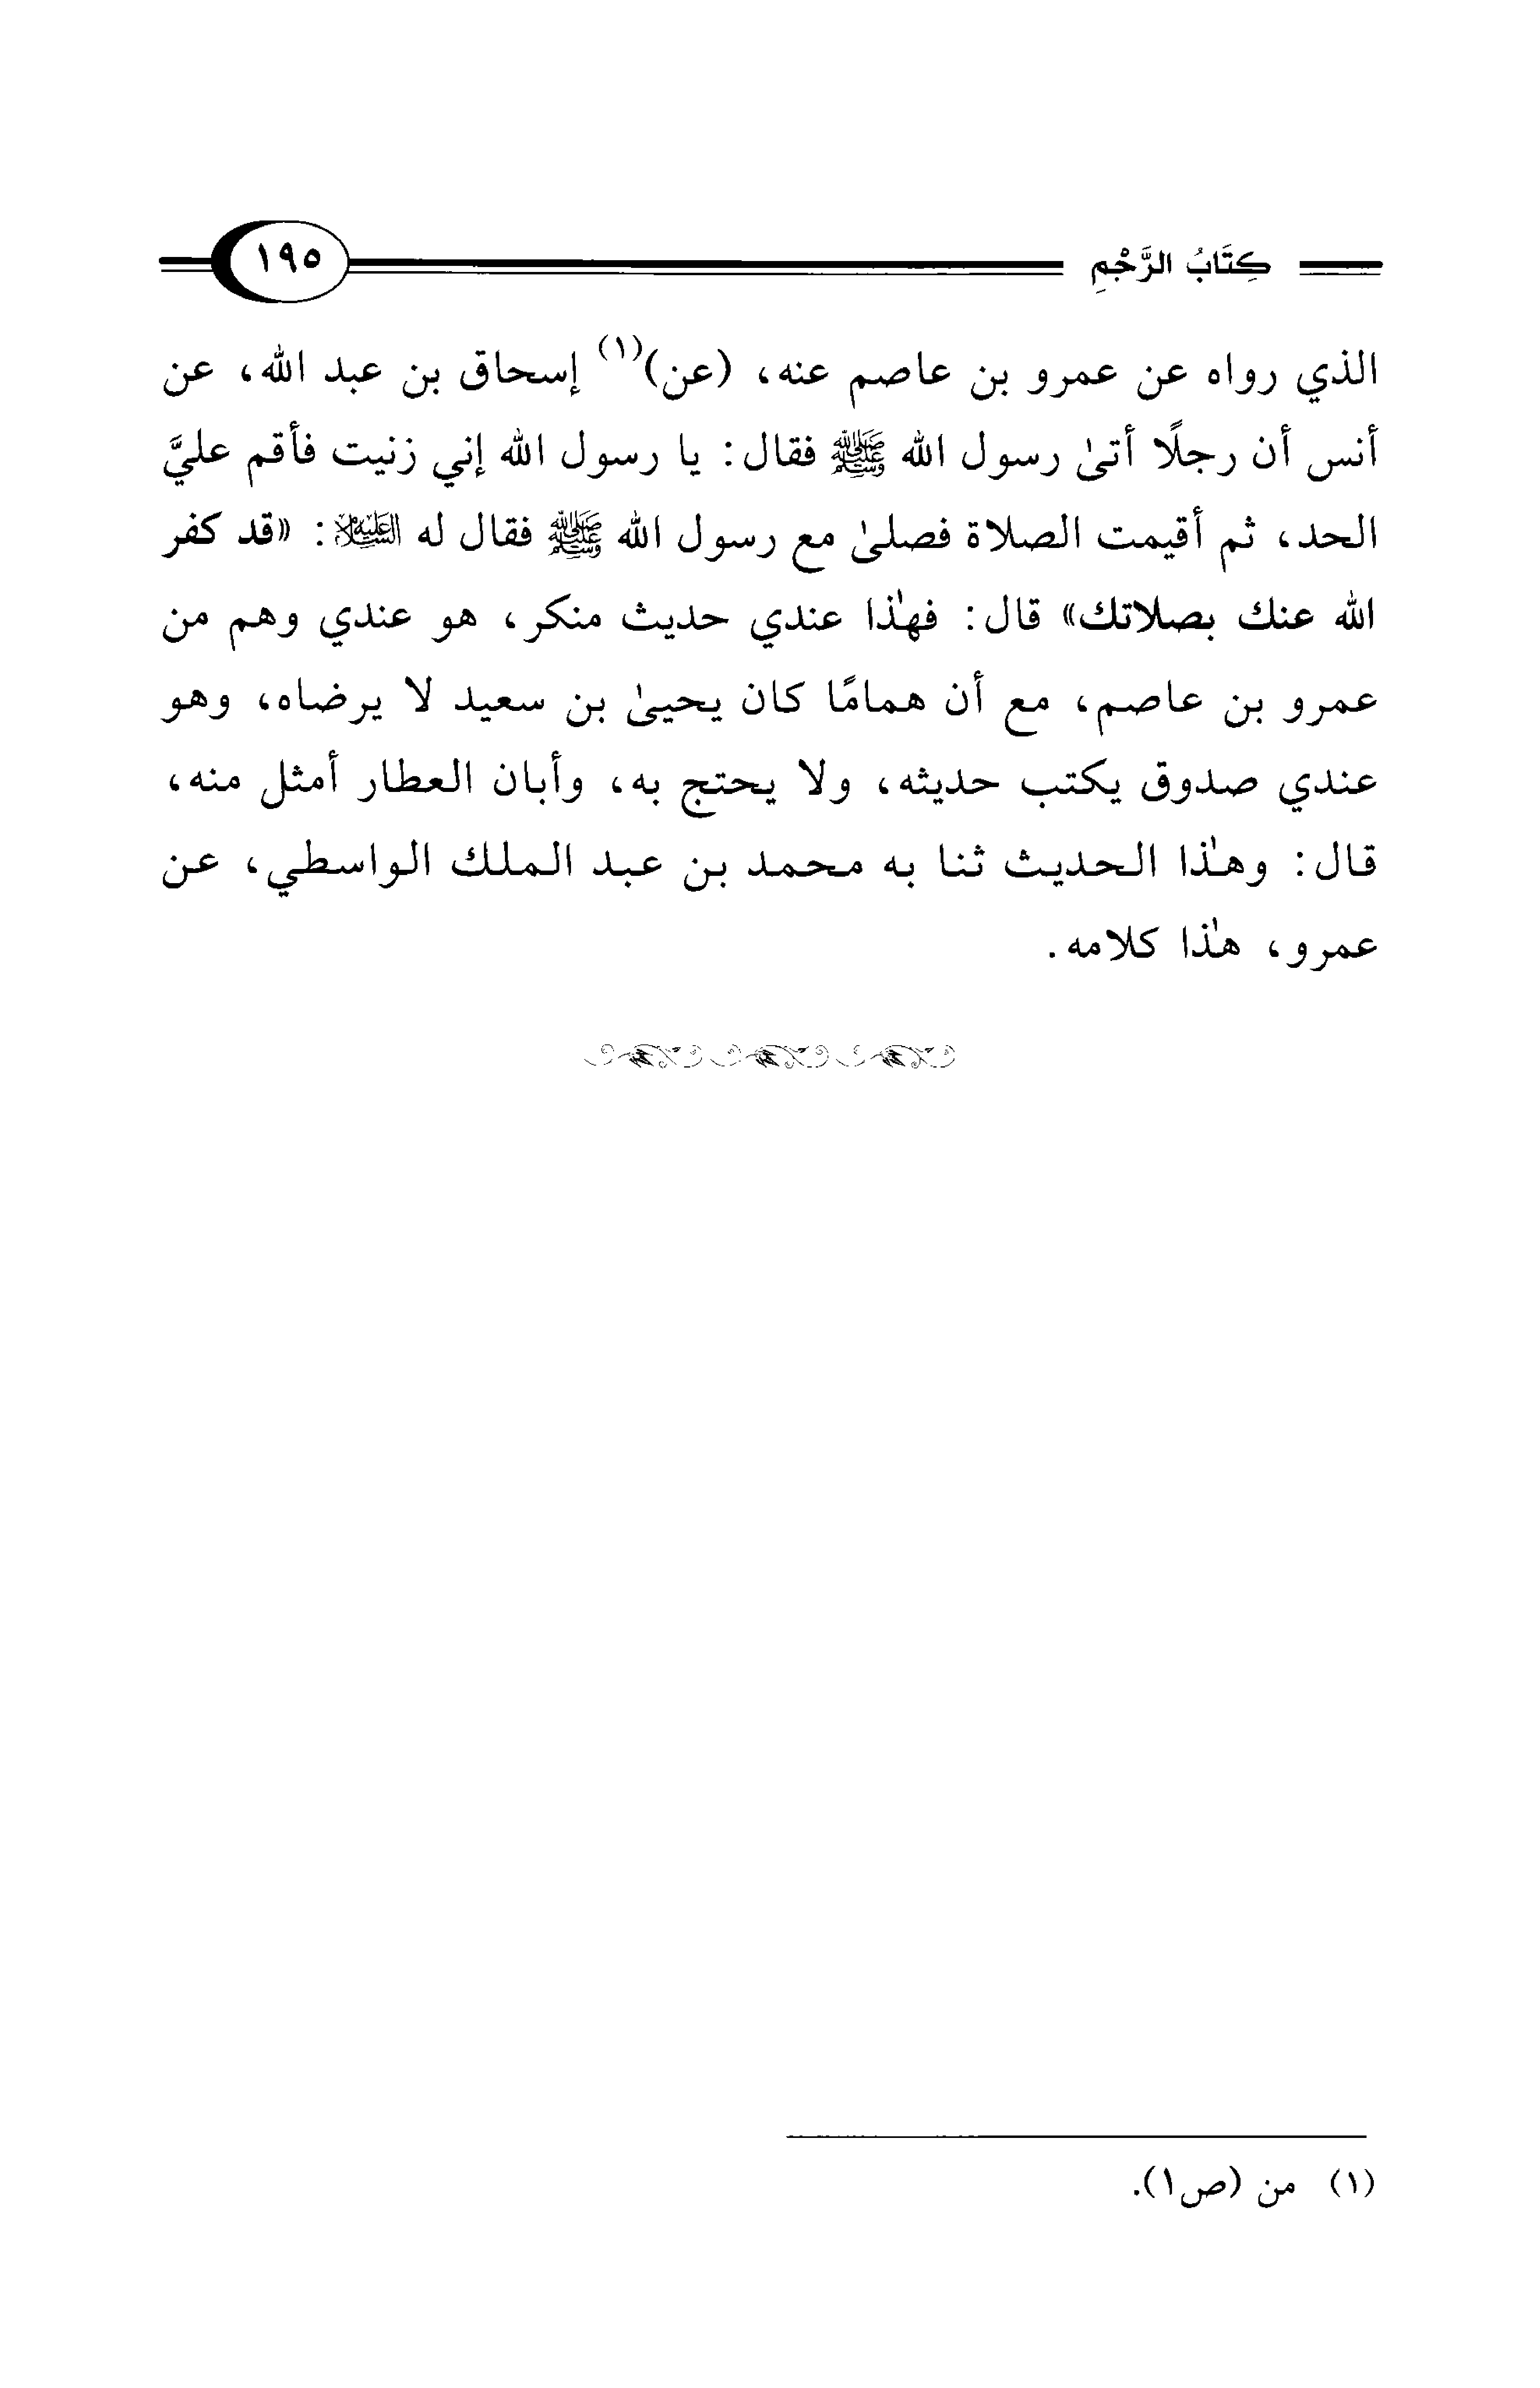 كِتَابُ الرَّجْمِ ١٩٥
الذي رواه عن عمرو بن عاصم عنه، (عن)(١) إسحاق بن عبد الله، عن
أنس أن رجلًا أتىٰ رسول الله ﷺ فقال: يا رسول الله إني زنيت فأقم عليَّ
الحد، ثم أقيمت الصلاة فصلىٰ مع رسول الله ﷺ فقال له عليه السلام: «قد كفر
الله عنك بصلاتك» قال: فهٰذا عندي حديث منكر، هو عندي وهم من
عمرو بن عاصم، مع أن همامًا كان يحيىٰ بن سعيد لا يرضاه، وهو
عندي صدوق يكتب حديثه، ولا يحتج به، وأبان العطار أمثل منه،
قال: وهٰذا الحديث ثنا به محمد بن عبد الملك الواسطي، عن
عمرو، هٰذا كلامه.
(١) من (ص١).